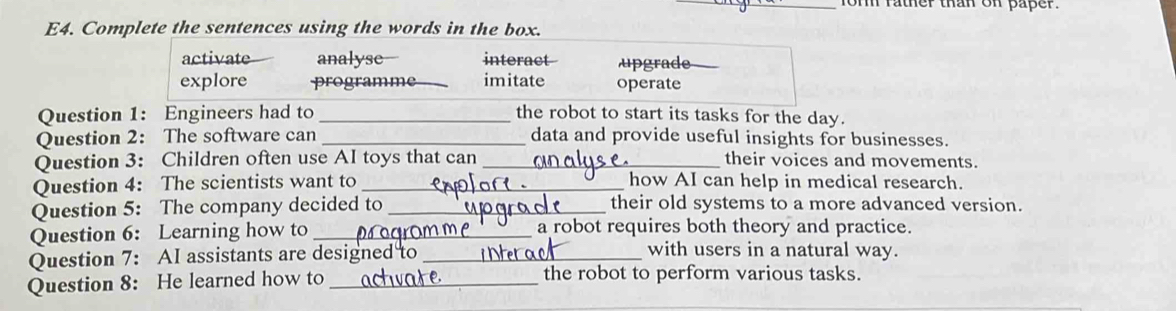 form rather than on paper.
E4. Complete the sentences using the words in the box.
activate analyse interact upgrade
explore programme imitate operate
Question 1: Engineers had to ____________ the robot to start its tasks for the day.
Question 2: The software can ____________ data and provide useful insights for businesses.
Question 3: Children often use AI toys that can analyse. their voices and movements.
Question 4: The scientists want to explore. how AI can help in medical research.
Question 5: The company decided to upgrade their old systems to a more advanced version.
Question 6: Learning how to programme a robot requires both theory and practice.
Question 7: AI assistants are designed to interact with users in a natural way.
Question 8: He learned how to activate. the robot to perform various tasks.